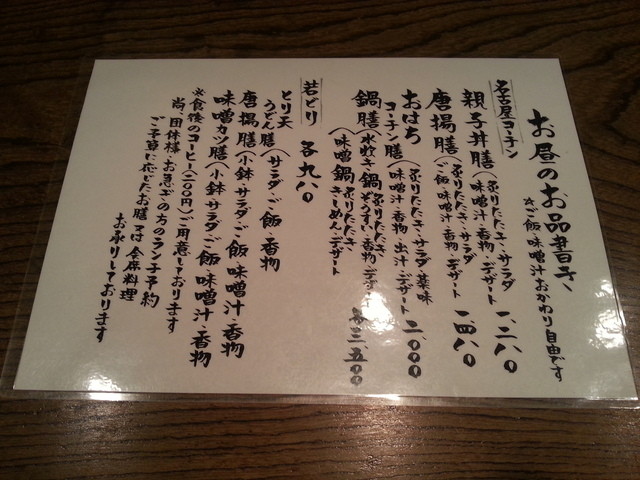 お昼のお品書き、
☆ご飯・味噌汁おかわり自由です
名古屋コーチン
親子丼膳(炙りたたき・サラダ
味噌汁・香物・デザート 一、二八〇
唐揚膳(炙りたたき・サラダ
ご飯・味噌汁・香物・デザート 一、四八〇
おはち
コーチン膳(炙りたたき・サラダ・薬味
味噌汁・香物・出汁・デザート 二、〇〇〇
鍋膳(水炊き鍋 炙りたたき
ぞうすい・香物・デザート
(味噌鍋 炙りたたき
きしめん・デザート 各三、五〇〇
若どり 各九八〇
とり天
うどん膳(サラダ・ご飯・香物
唐揚膳(小鉢・サラダ・ご飯・味噌汁・香物
味噌カツ膳(小鉢・サラダ・ご飯・味噌汁・香物
※食後のコーヒー(二〇〇円)ご用意しております
尚、団体様・お急ぎの方のランチ予約
ご予算に応じたお膳又は会席料理
お承りしております